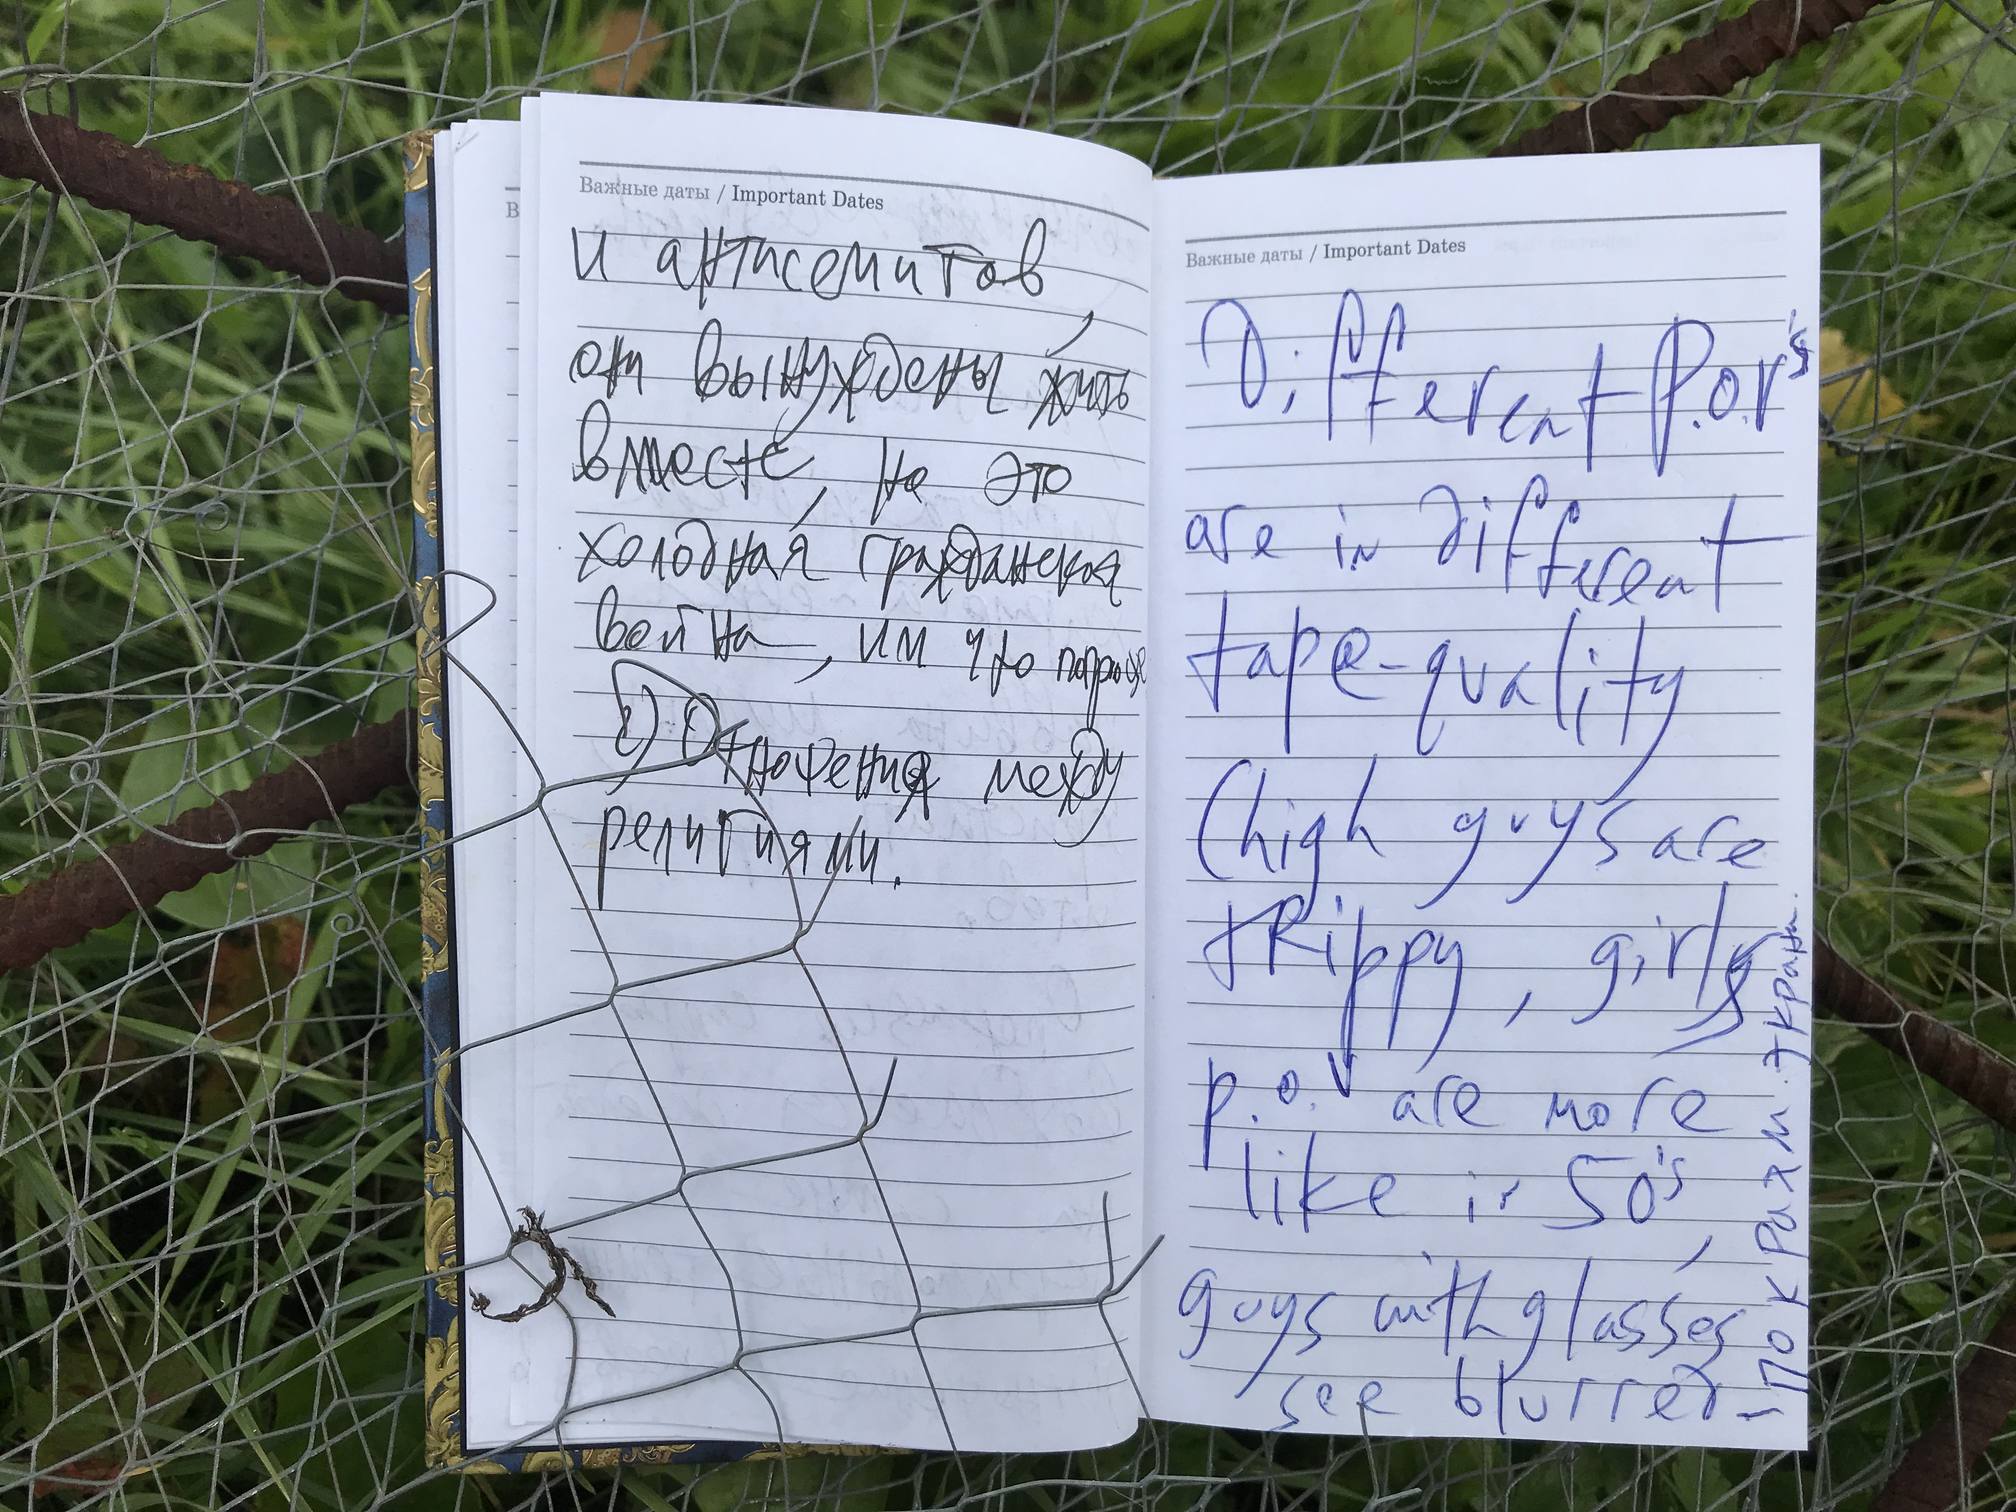 Важные даты / Important Dates
и антисемитов,
они вынуждены жить
вместе, но это
холодная гражданская
война, им что
2) Отношения между
религиями.
Важные даты / Important Dates
Different P.O.V's
are in different
tape-quality
(high guys are
tRippy, girls
p.o.v are more
like in 50's,
guys with glasses
see blurred-
по краям экрана.